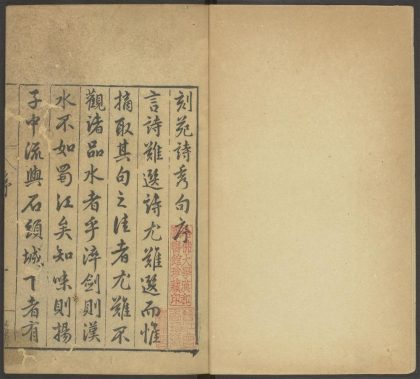 刻苑詩秀句序
言詩難選詩尤難選而惟
摘取其句之佳者尤難不
觀諸品水者乎淬劍則漢
水不如蜀江矣知味則揚
子中流與石頭城下者有
序